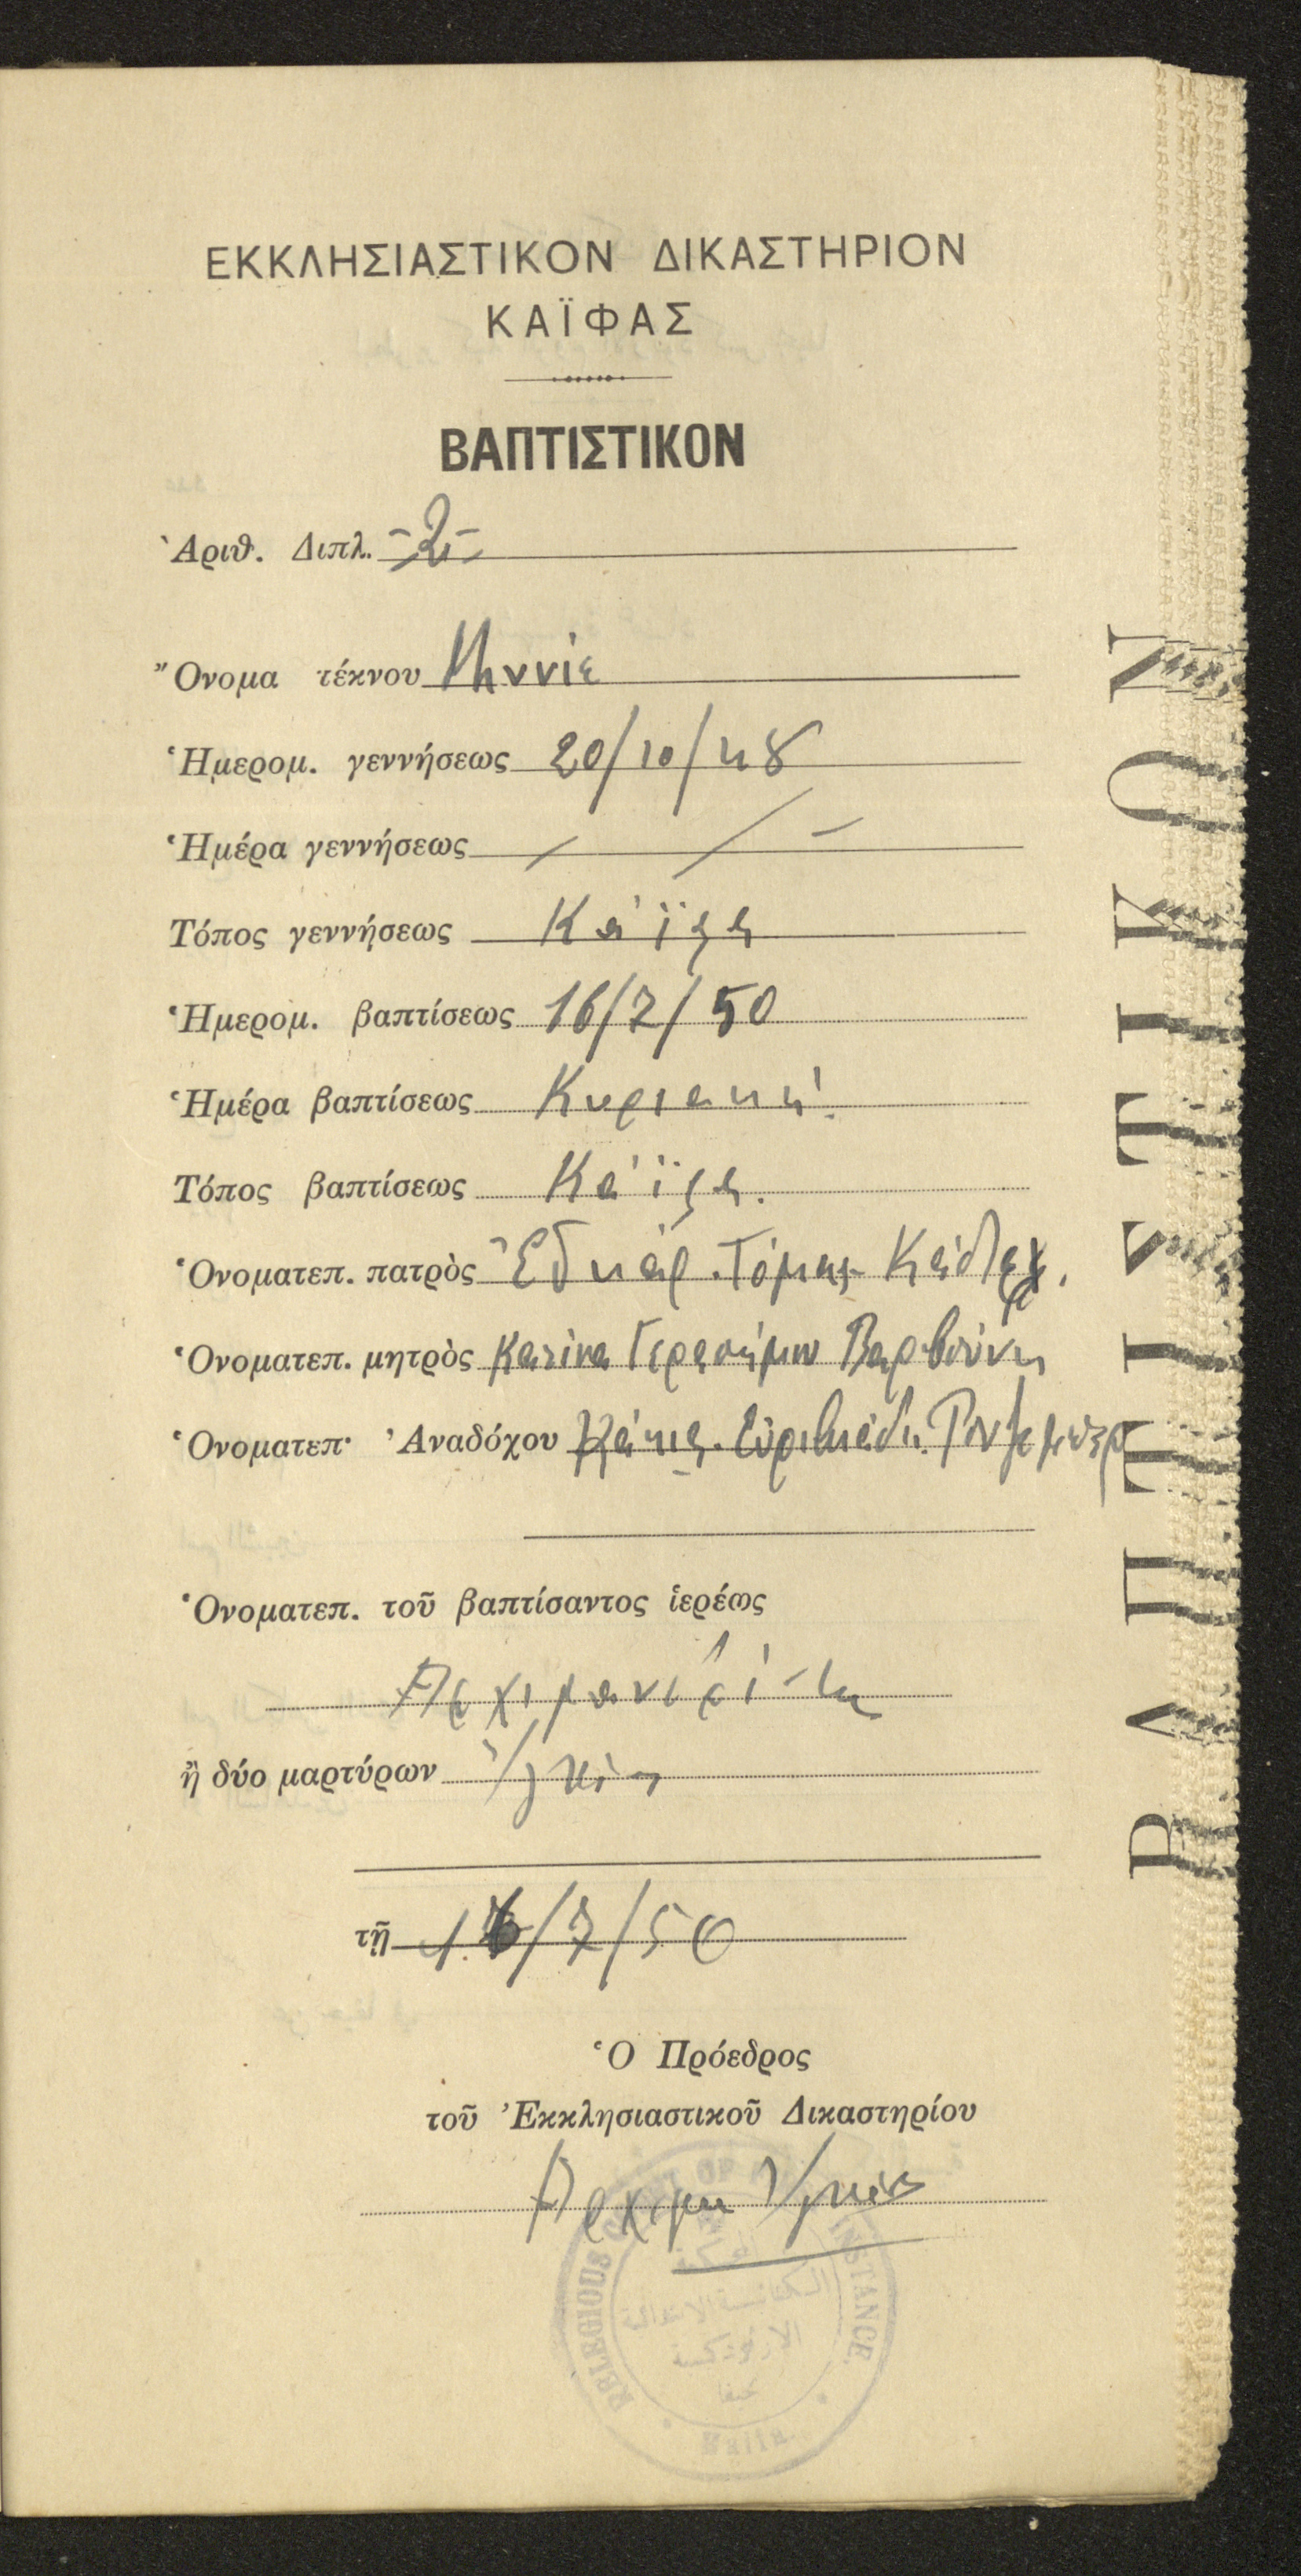 ΕΚΚΛΗΣΙΑΣΤΙΚΟΝ ΔΙΚΑΣΤΗΡΙΟΝ
ΚΑΪΦΑΣ
ΒΑΠΤΙΣΤΙΚΟΝ
Ἀριθ. Διπλ. -2-
Ὄνομα τέκνου Μηννίε
Ἡμερομ. γεννήσεως 20/10/48
Ἡμέρα γεννήσεως
Τόπος γεννήσεως Κάϊφα
Ἡμερομ. βαπτίσεως 16/7/50
Ἡμέρα βαπτίσεως Κυριακή
Τόπος βαπτίσεως Κάϊφα.
Ὀνοματεπ. πατρὸς Ἐδκάρ Τόμας
Ὀνοματεπ. μητρὸς Κατίνα Γερασίμου Βαρβούνη
Ὀνοματεπ. Ἀναδόχου Εὐριβιάδη
Ὀνοματεπ. τοῦ βαπτίσαντος ἱερέως
Ἀρχιμανδρίτη
ἢ δύο μαρτύρων
τῇ 16/7/50
Ὁ Πρόεδρος
τοῦ Ἐκκλησιαστικοῦ Δικαστηρίου
Ἀρχιμ
RELIGIOUS COURT OF INSTANCE.
الكنائسية الابتدائية
الارثوذكسية
حيفا
Haifa
ΒΑΠΤΙΣΤΙΚΟΝ